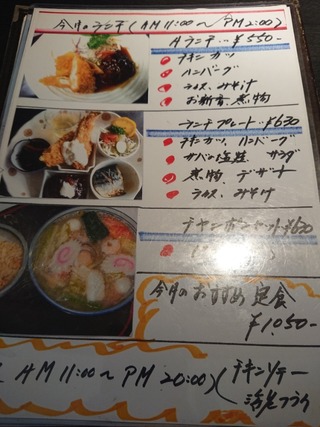 今月のランチ(AM 11:00〜PM 2:00)
Aランチ…¥550-
チキンカツ
ハンバーグ
ライス、みそ汁
お新香、煮物
ランチプレート…¥630
チキンカツ、ハンバーグ
サバノ塩焼 サラダ
煮物、デザート
ライス、みそ汁
チャンポンセット¥630
今月のおすすめ定食
¥1,050-
AM 11:00〜PM 20:00)(チキンソテー
海老フライ